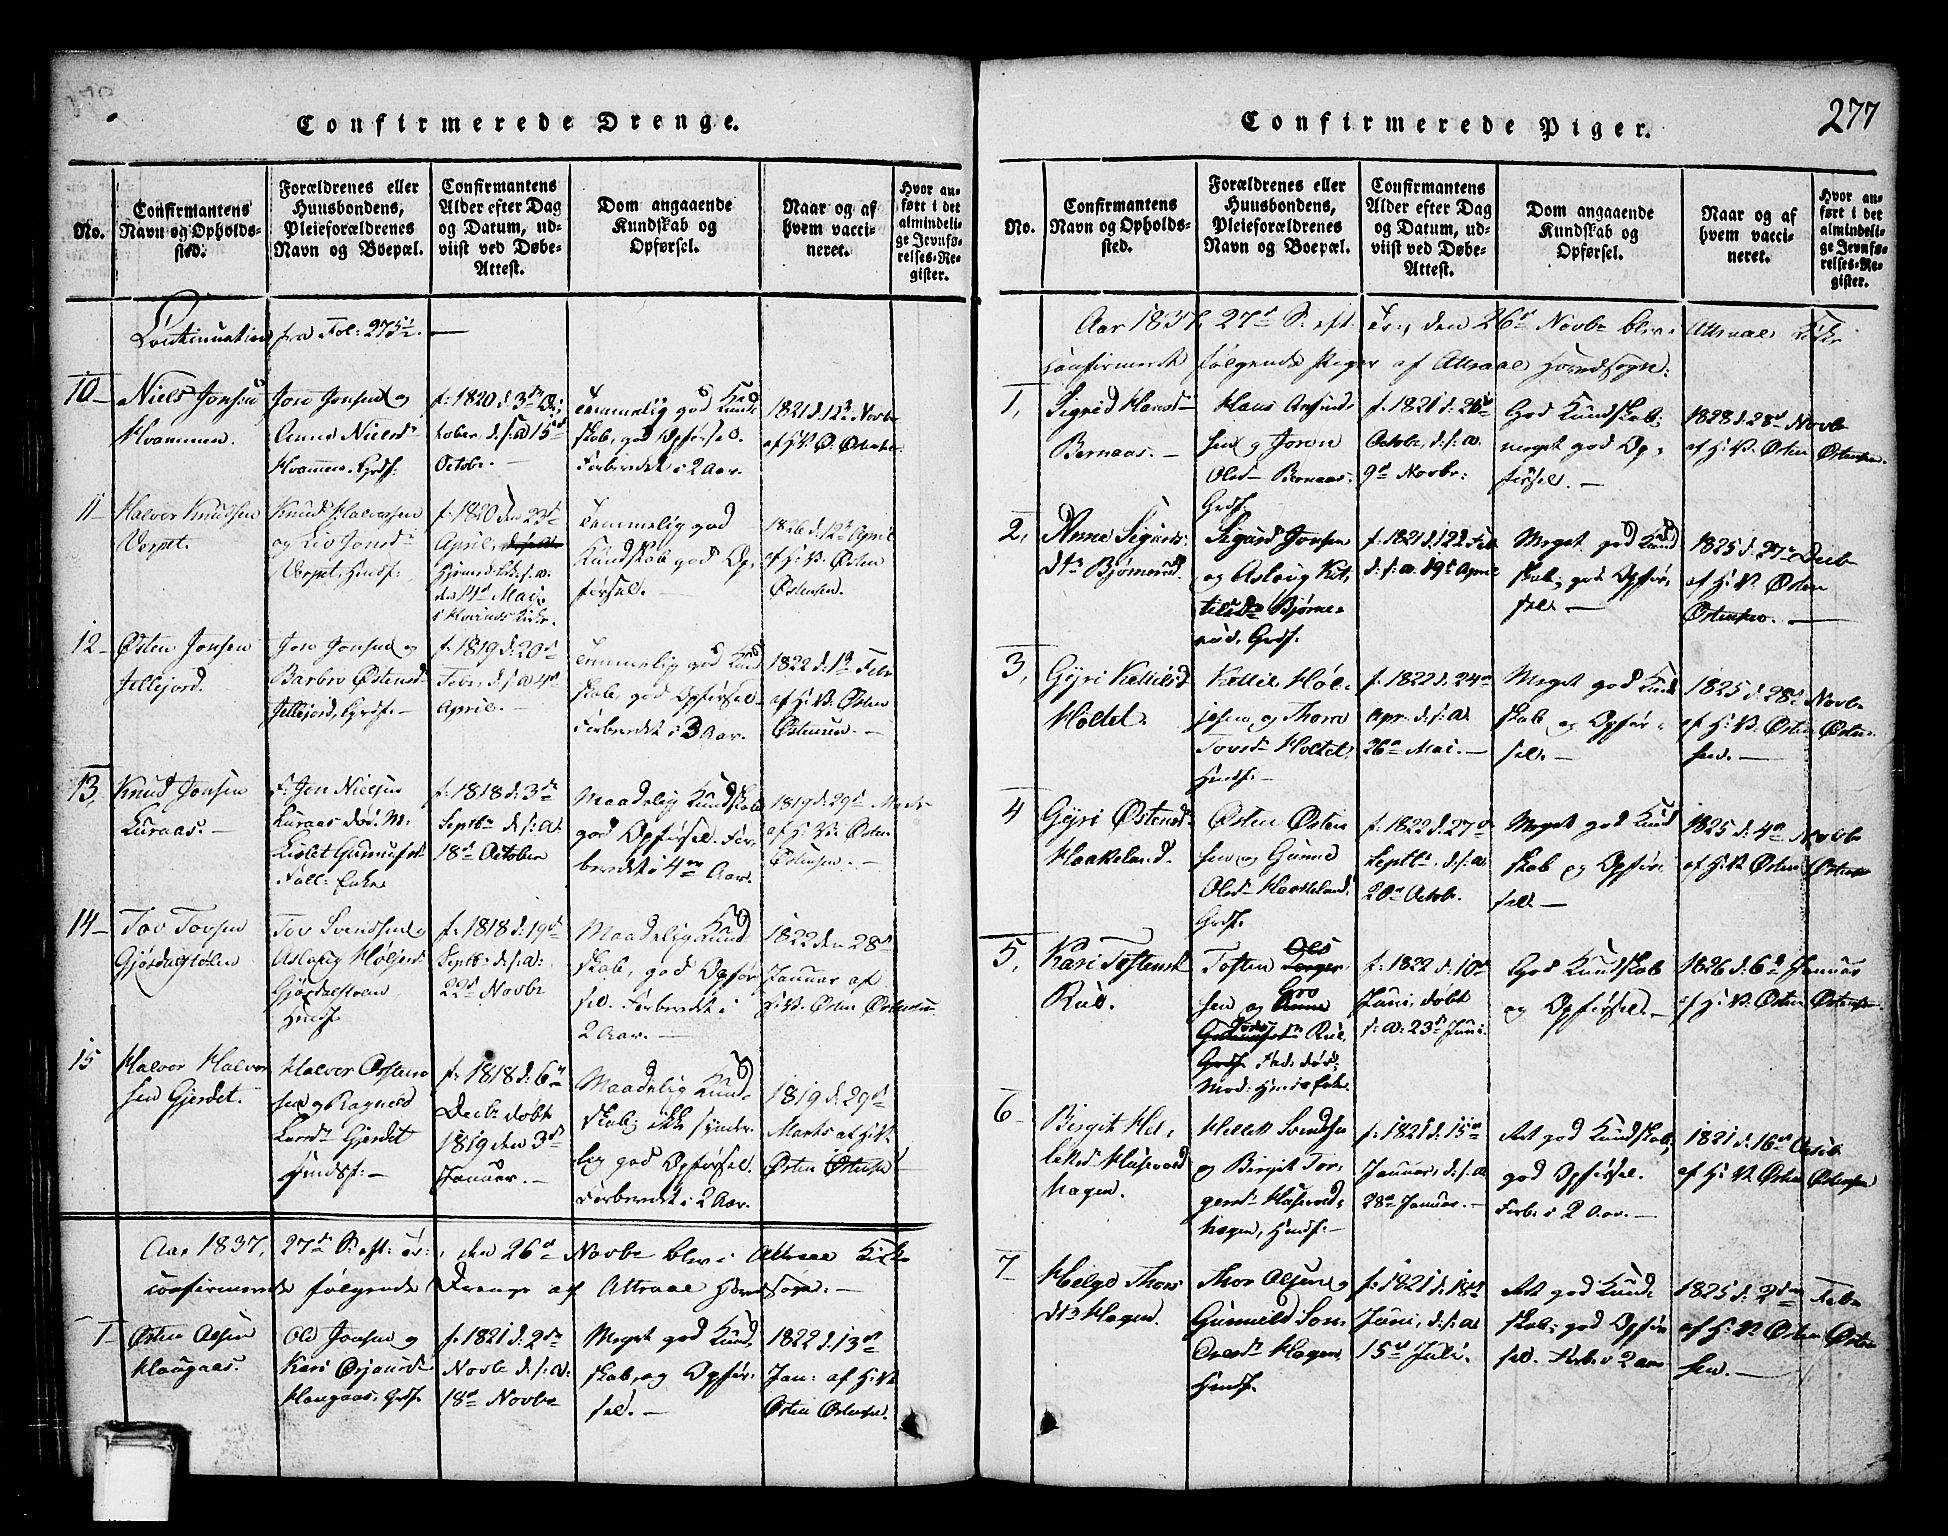 Confirmerede Drenge.
No.
Confirmantens
Navn og Opholds-
sted.
Forældrenes eller
Huusbondens,
Pleieforældrenes
Navn og Boepæl.
Confirmantens
Alder efter Dag
og Datum, ud-
viist ved Døbe-
Attest.
Dom angaaende
Kundskab og
Opførsel.
Naar og af
hvem vacci-
neret.
Hvor an-
ført i det
almindeli-
ge Jevnfø-
relses-Re-
gister.
Continuation fra Fol: 275½ —
10 —
Niels Jonsen
Kvammen.
Jon Jonsen og
Anne Nielsd
Kvammen. Grdf:
f: 1820 d: 3de Oc-
tober. d. s: a 15de
Octobr. —
Temmelig god Kund
skab, god Opførsel.
Forberedt i 2 Aar.
1821 d: 12 Novbr
af H: V: Ø: Østensen
11 —
Halvor Knudsen
Verpet.
Knud Halvorsen
og Liv Jonsd
Verpet, Huusf:
f: 1820 den 23de
April, d: s: a:
d: s: a:
den 14de Mai
i Hovinds Kirke.
Temmelig god
Kundskab god Op-
førsel. —
1826 d: 12te April
af H: V: Østen
Østensen.
12 —
Østen Jonsen
Jellejord.
Jon Jonsen og
Barbro Østensd
Jellejord, Grdf: —
f: 1819 d: 20de
Febr, d: s: a 4de
April. —
Temmelig god Kund
skab, god Opførsel —
Forberedt i 3 Aar.
1822 d: 13 Febr
af H: V: Østen
Østensen. —
13,
Knud Jonsen
Luraas. —
F: Jon Nielsen
Luraas død. M:
Lislet Gunnufsd
Fatt: Enke
f: 1818 d: 3de
Septbr d: s: a:
18de October
Maadelig Kundskab
god Opførsel. For-
beredt i 4re Aar.
1819 d: 29de Marts
af H: V: Østen
Østensen. —
14 —
Tov Tovsen
Gjøsdalstølen
Tov Svendsen og
Aslaug Høljesd
Huusf
f: 1818 d: 19de
Septb: d: s: a:
22de Novbr
Maadelig Kund-
skab, god Opfør
sel. Forberedt i
2 Aar. —
1822 den 28de
Januar af
H: V: Østen Østensen
15
Halvor Halvor
sen Gjerdet.
Halvor Østen
sen og Ragnild
Larsd Gjerdet
Huusf: —
f: 1818 d: 6te
Decbr døbt
1819 den 3de
Januar. —
Maadelig Kund-
skab; ikke synder-
lig god Opførsel.
Forberedt i 2 Aar.
1819 d: 29de
Marts af H: V:
Østen Østensen
Aar 1837, 27de S: eft: Tr:, den 26de Novbr blev i Attraae Kirke
confirmerede følgende Drenge af Attraae Hovedsogn. —
1 —
Østen Olsen
Haugaas.
Ole Jonsen og
Kari Ørjansd
Haugaas, Grdf.
f: 1821 d: 2den
Novbr d: s: a:
18de Novbr
Meget god Kund
skab, og Opfør-
sel. —
1822 d: 13de
Jan: af H: V:
Østen Østensen.
277
Confirmerede Piger.
No.
Confirmantens
Navn og Opholds-
sted.
Forældrenes eller
Huusbondens,
Pleieforældrenes
Navn og Boepæl.
Confirmantens
Alder efter Dag
og Datum, ud-
viist ved Døbe-
Attest.
Dom angaaende
Kundskab og
Opførsel.
Naar og af
hvem vacci-
neret.
Hvor an-
ført i det
almindeli-
ge Jevnfø-
relses-Re-
gister.
Aar 1837, 27de S: eft: Tr:, den 26de Novbr blev i Attraae Kirke
confirmerede følgende Piger af Attraae Hovedsogn:
1,
Sigrid Hansd
Bernaas. —
Hans Amund-
sen og Joren
Olsd Bernaas:
Grdf.
f: 1821 d: 26de
Octobr, d: s: a.
9de Novbr:
God Kundskab,
meget god Op-
førsel. —
1828 d: 28de Novbr
af H: V: Østen Østensen.
2,
Anne Sigurds
dtr Bjørnerud.
Sigurd Jonsen
og Aslaug Ket-
tilsd Bjørne-
rud, Grdf.
f: 1821 d. 22 Feb
d: s: a. 19de April
Meget god Kund
skab; god Opfør-
sel. —
1825 d: 27de Decb
af H: V: Østen
Østensen. —
3,
Gyri Kettilsd
Holtet.
Kettil Høl-
jesen, og Thore
Tovsd Holtet,
Huusf: —
f: 1822 d: 24de
Apr. d: s: a.
26de Mai. —
Meget god Kund
skab og Opfør-
sel. —
1825 d: 28de Novbr
af H: V: Østen Østen-
sen. —
4
Gyri Østensd
Haakeland.
Østen Østen
sen og Gunne
Olsd Haakeland,
Grdf.
f: 1822 d: 27de
Septbr. d: s: a
20de Octobr.
Meget god Kund
skab og Opfør-
sel. —
1825 d: 4de Novbr
af H: V: Østen Østensen
5,
Kari Tostensd
Rue.
Tosten Ols
sen og Gro
Rue,
Grdf. Fad: død.
Mod: Huus Enke.
f: 1822 d: 10de
Juni, døbt
s: a: 23de Juni
God Kundskab
og Opførsel. —
1826 d: 6te Januar
af H: V: Østen Østensen
6 —
Birgit Hel-
leksd Husevold
hagen.
Hellek Svendsen
og Birgit Tor-
gersd Husevold-
hagen, Huusf: —
f: 1821 d: 15de
Januar, d: s: a
28de Januar. —
Ret god Kundskab,
god Opførsel.
Forb: i 2 Aar. —
1821 d: 16de Octob
af H: V: Østen Østensen
7 —
Helge Thors
dtr Hagen.
Thor Olsen og
Gunnild Son-
dresd Hagen,
Huusf.
f: 1821 d: 18de
Juni, d: s: a
15de Juli.
Ret god Kund
skab; god Opfør
sel. Forb: i 2 Aar
1825 d: 2den Febr
af H: V: Østen Østen
sen. —